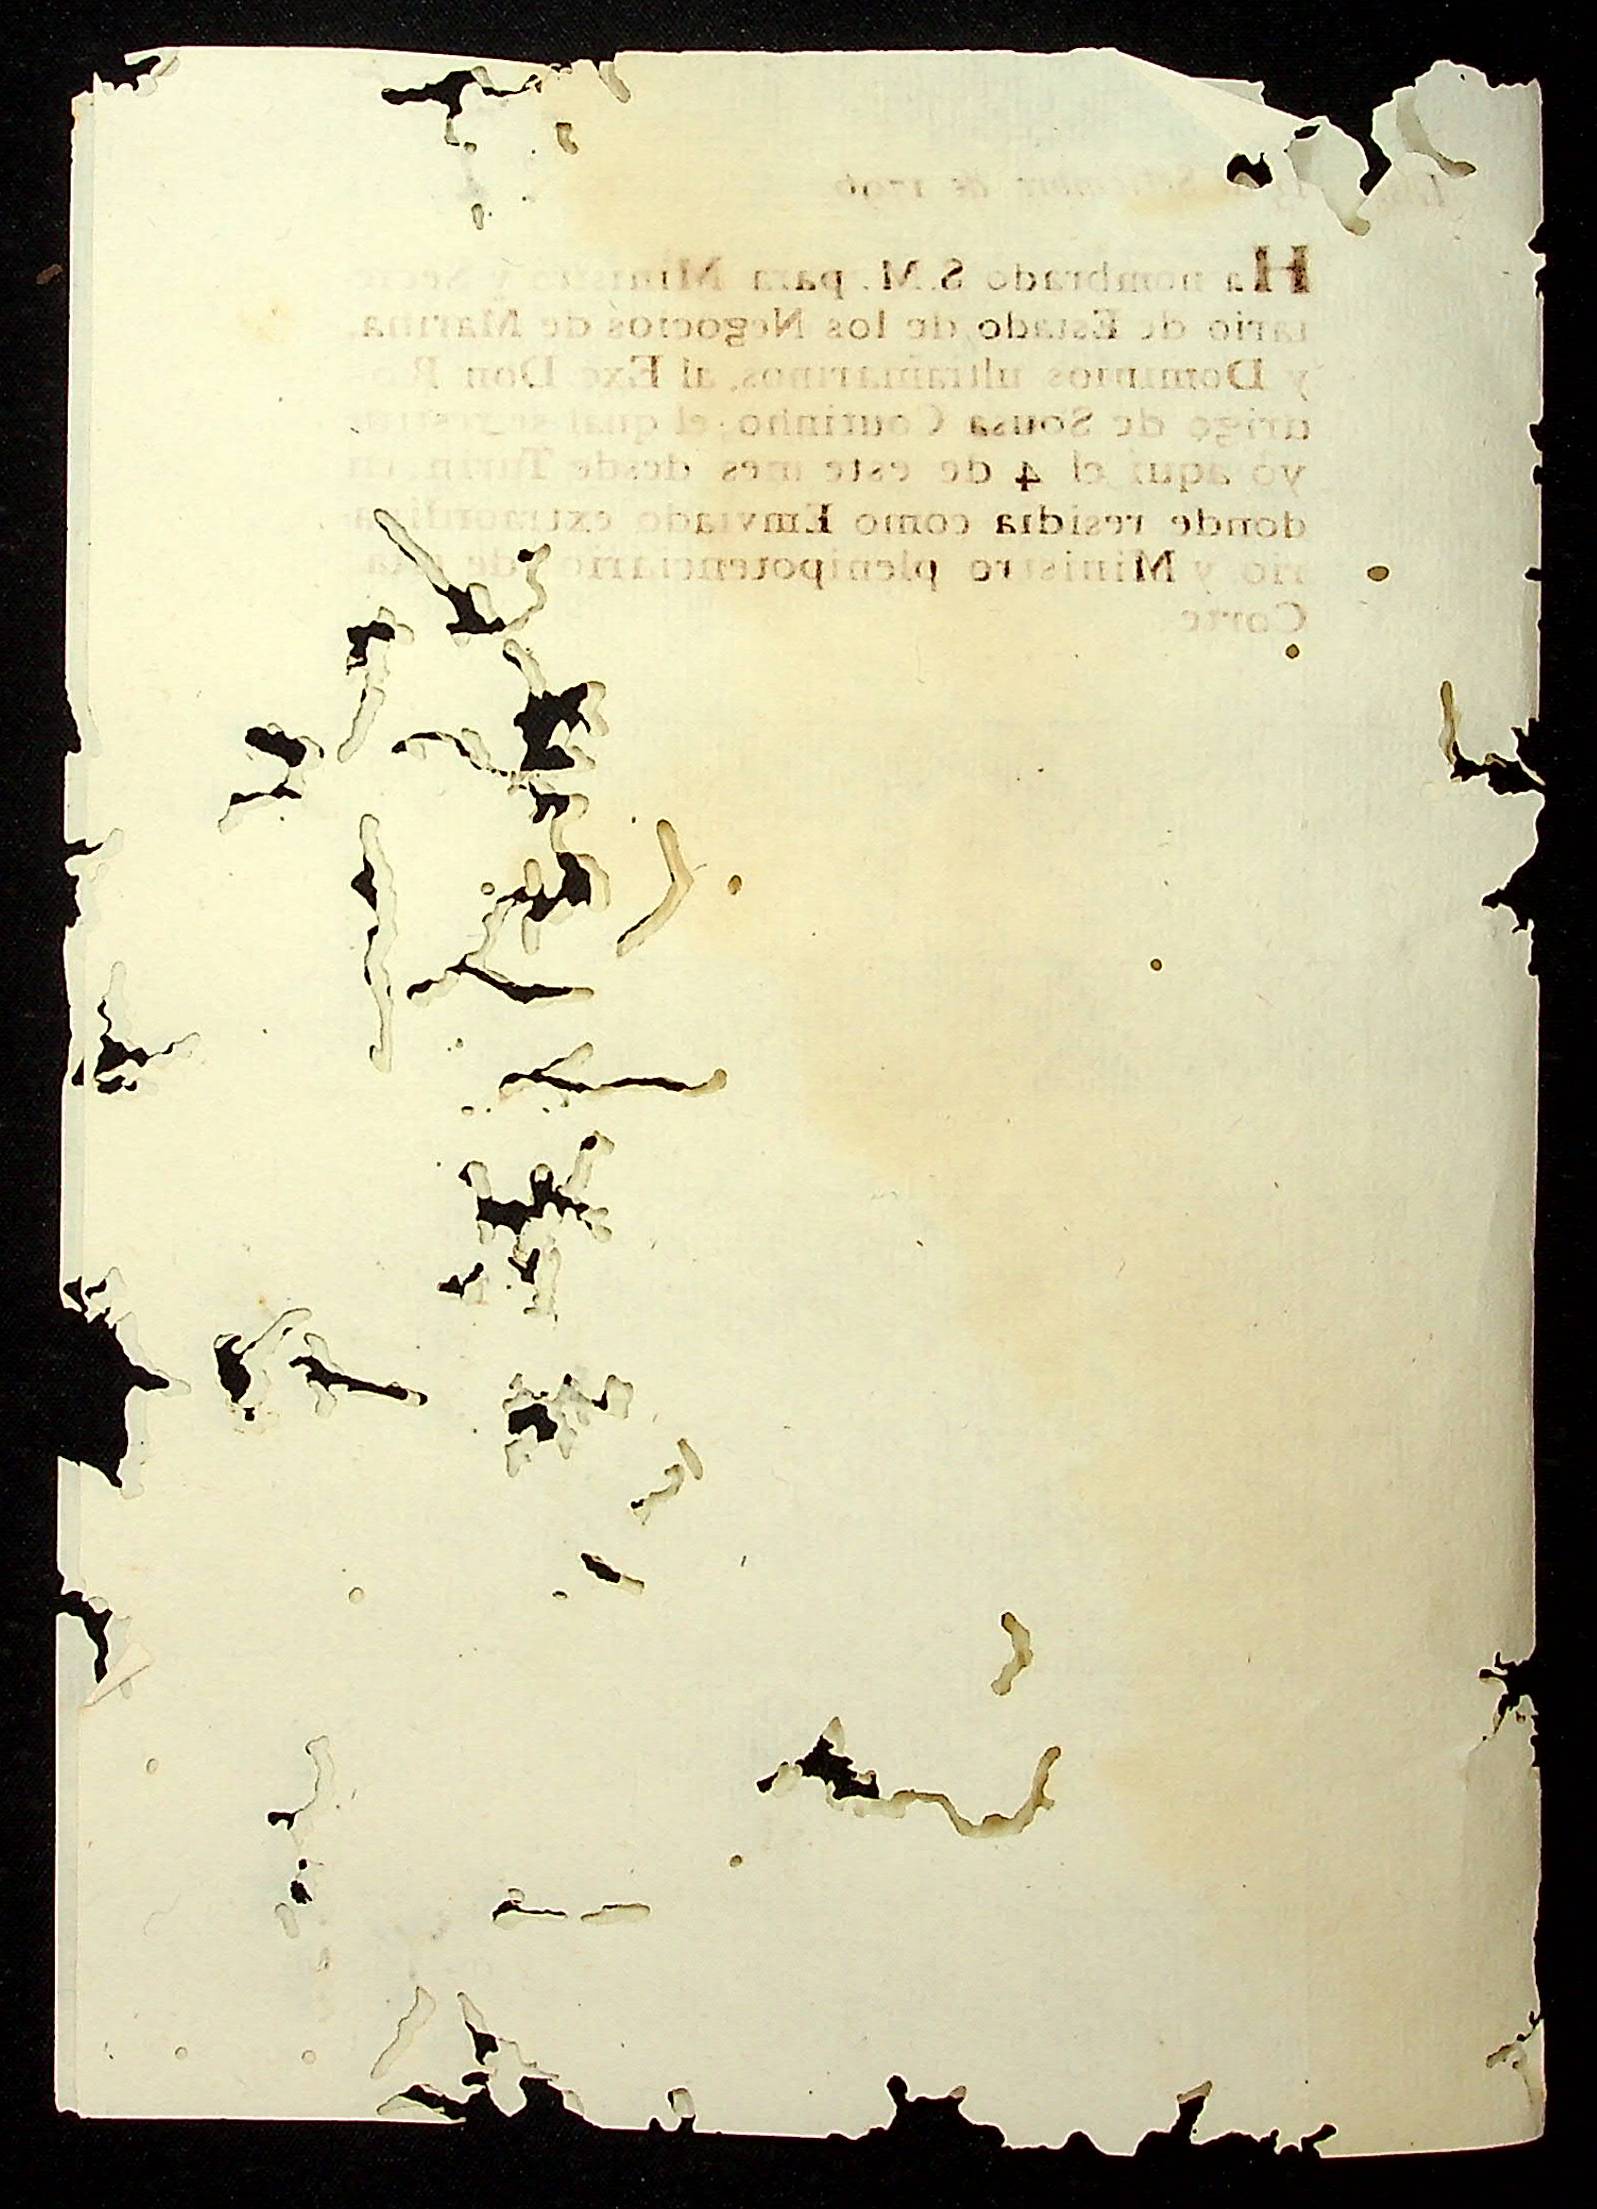 Setiembre de 1796
Ha nombrado S.M. para Ministro y Secre-
tario de Estado de los Negocios de Marina,
y Dominios ultramarinos, al Exc. Don Ro-
drigo de Sousa Coutinho, el qual se restitu-
yó aqui el 4 de este mes desde Turin, en
donde residia como Emviado extraordina-
rio y Ministro plenipotenciario de esta
Corte